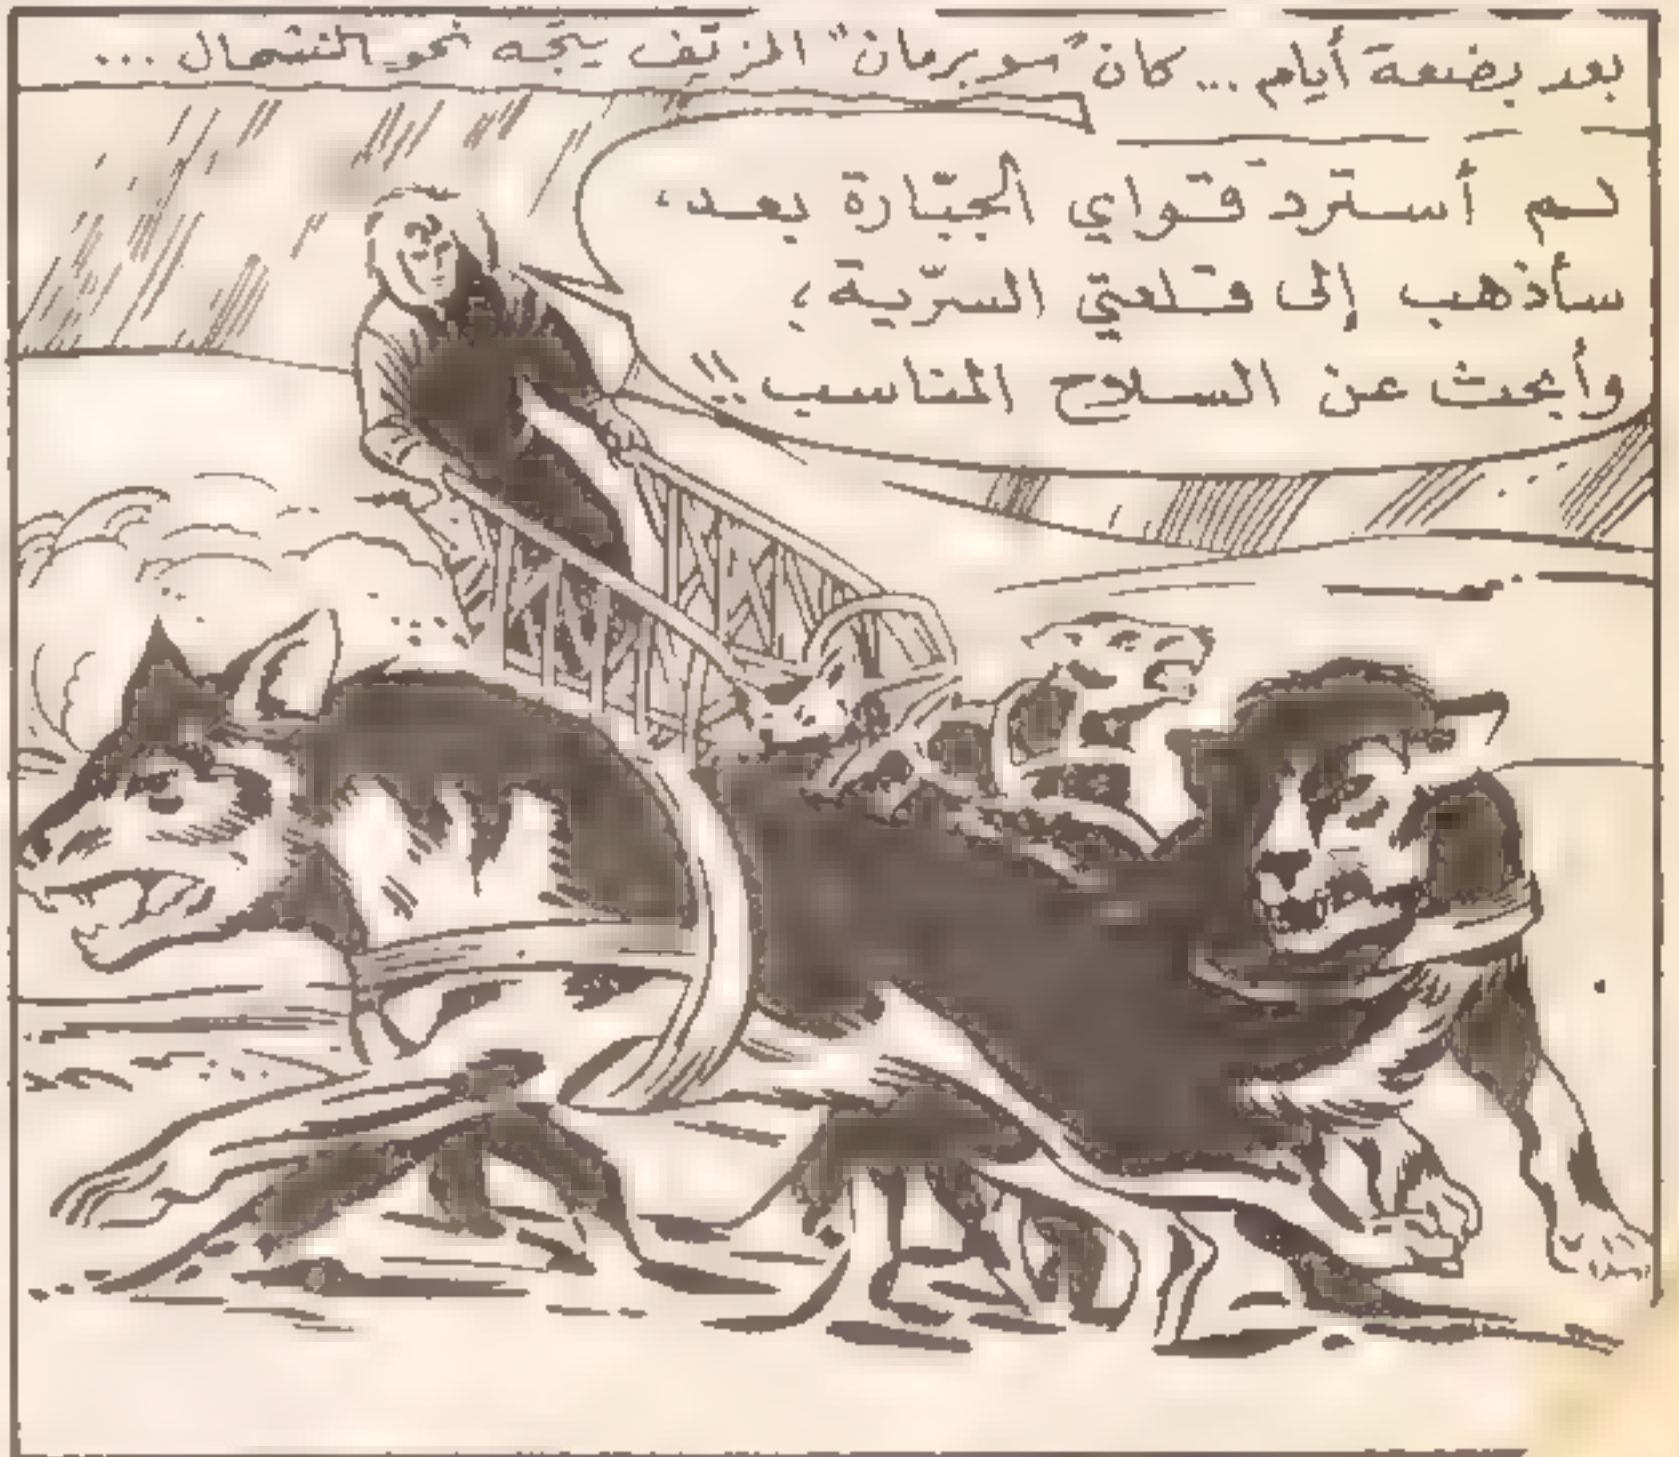 بعد بضعة أيام ... كان "سوبرمان" المزيّف يتّجه نحو الشمال ...
لم أسترد قواي الجبّارة بعد،
سأذهب إلى قلعتي السرّية،
وأبحث عن السلاح المناسب!!